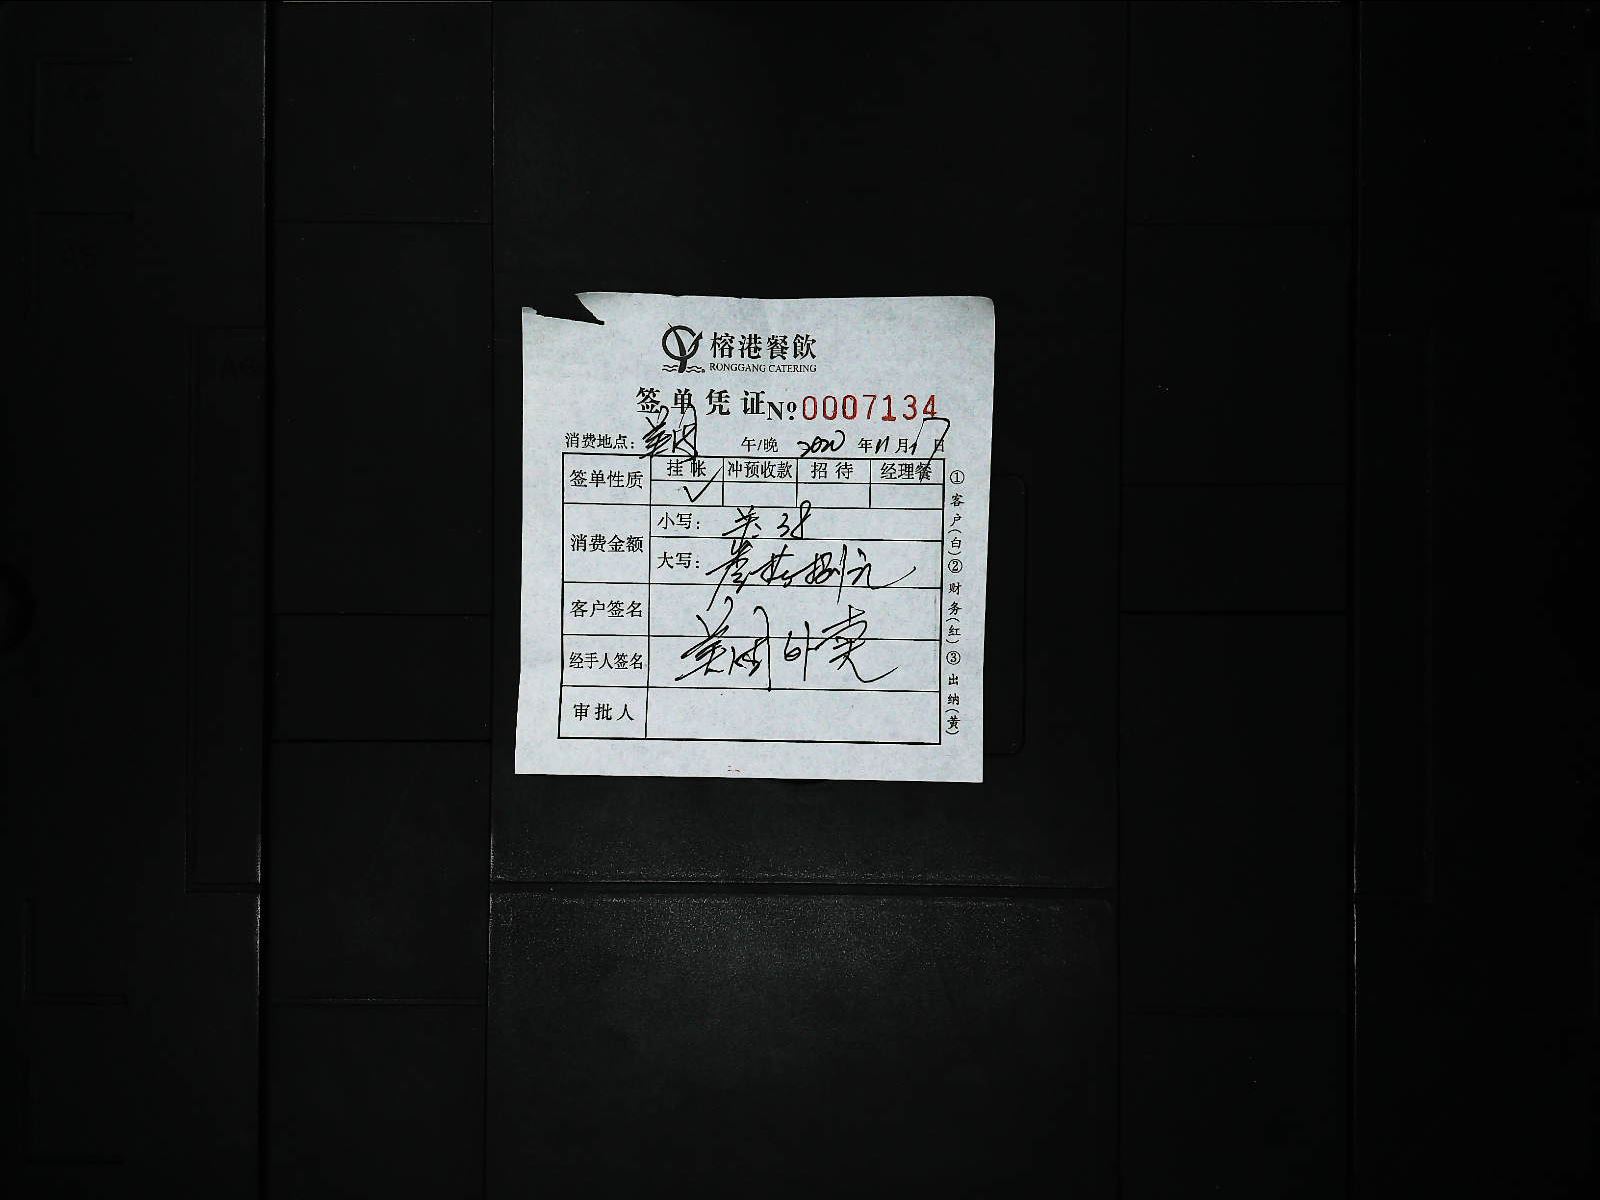 榕港餐飲
RONGGANG CATERING
签单凭证 №0007134
消费地点：美团 午/晚 2020年11月17日
签单性质 挂帐 冲预收款 招待 经理餐
✓
消费金额 小写：共 38
大写：叁拾捌元
客户签名
美团外卖
经手人签名
审批人
①客户(白)②财务(红)③出纳(黄)